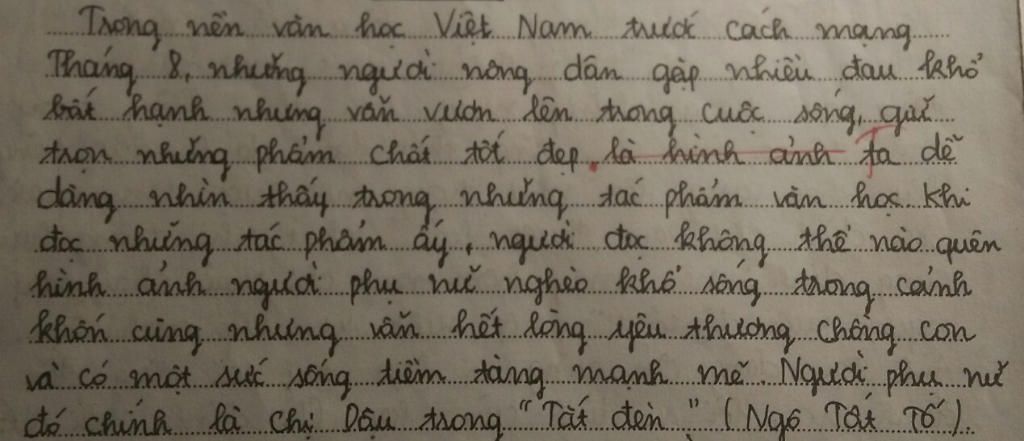 Trong nền văn học Việt Nam trước cách mạng
Tháng 8, những người nông dân gặp nhiều đau khổ
bất hạnh nhưng vẫn vươn lên trong cuộc sống, giữ
trọn những phẩm chất tốt đẹp. là hình ảnh ta dễ
dàng nhìn thấy trong những tác phẩm văn học. Khi
đọc những tác phẩm ấy, người đọc không thể nào quên
hình ảnh người phụ nữ nghèo khổ sống trong cảnh
khốn cùng nhưng vẫn hết lòng yêu thương chồng con
và có một sức sống tiềm tàng mạnh mẽ. Người phụ nữ
đó chính là chị Dậu trong "Tắt đèn" (Ngô Tất Tố).